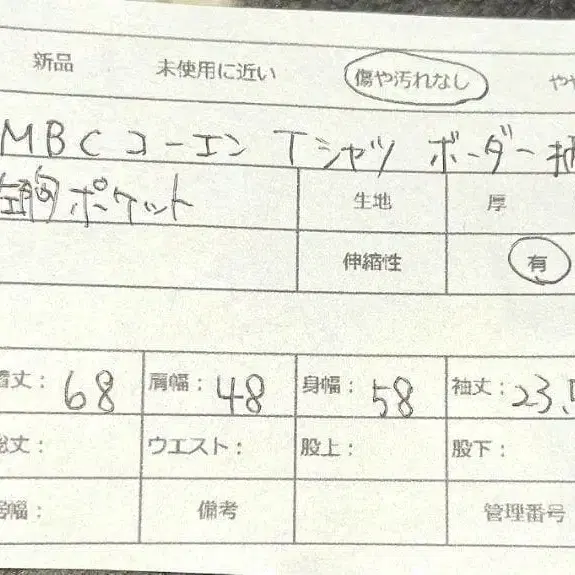 新品 未使用に近い 傷や汚れなし やや
MBC コーエン Tシャツ ボーダー柄
左胸ポケット 生地 厚
伸縮性 有
着丈： 68 肩幅： 48 身幅： 58 袖丈： 23.5
総丈： ウエスト： 股上： 股下：
裾幅： 備考 管理番号